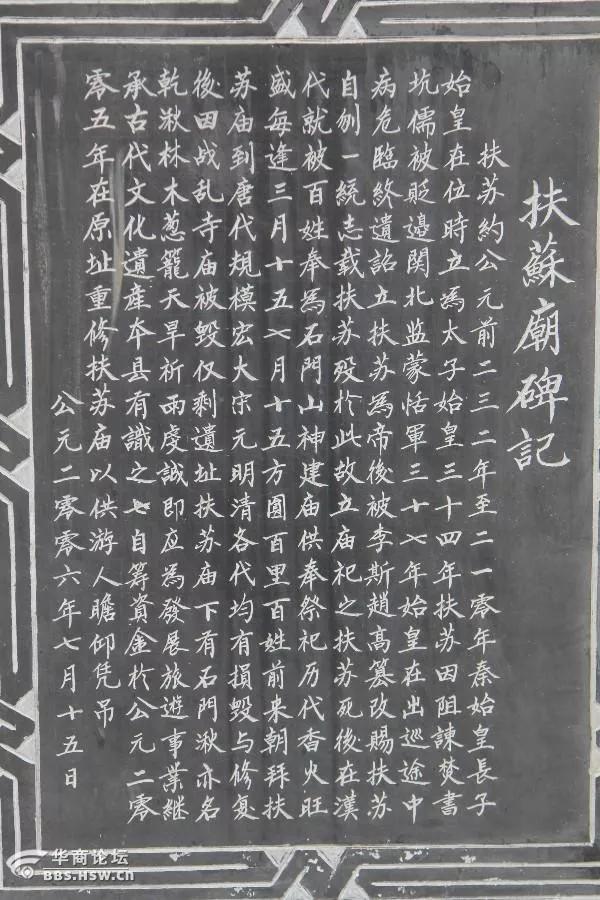 扶蘇廟碑記
扶苏約公元前二三二年至二一零年秦始皇長子
始皇在位時立為太子始皇三十四年扶苏因阻諫焚書
坑儒被貶邊関北监蒙恬軍三十七年始皇在出巡途中
病危臨終遺詔立扶苏為帝後被李斯趙高篡改賜扶苏
自刎一統志载扶苏殁於此故立庙祀之扶苏死後在漢
代就被百姓奉為石門山神建庙供奉祭祀历代香火旺
盛每逢三月十五七月十五方圓百里百姓前来朝拜扶
苏庙到唐代規模宏大宋元明清各代均有損毁与修复
後因战乱寺庙被毁仅剩遺址扶苏庙下有石門湫亦名
乾湫林木葱籠天旱祈雨虔誠即应為發展旅遊事業継
承古代文化遺産本县有識之士自筹資金於公元二零
零五年在原址重修扶苏庙以供游人瞻仰凭吊
公元二零零六年七月十五日
华商论坛
BBS.HSW.CN